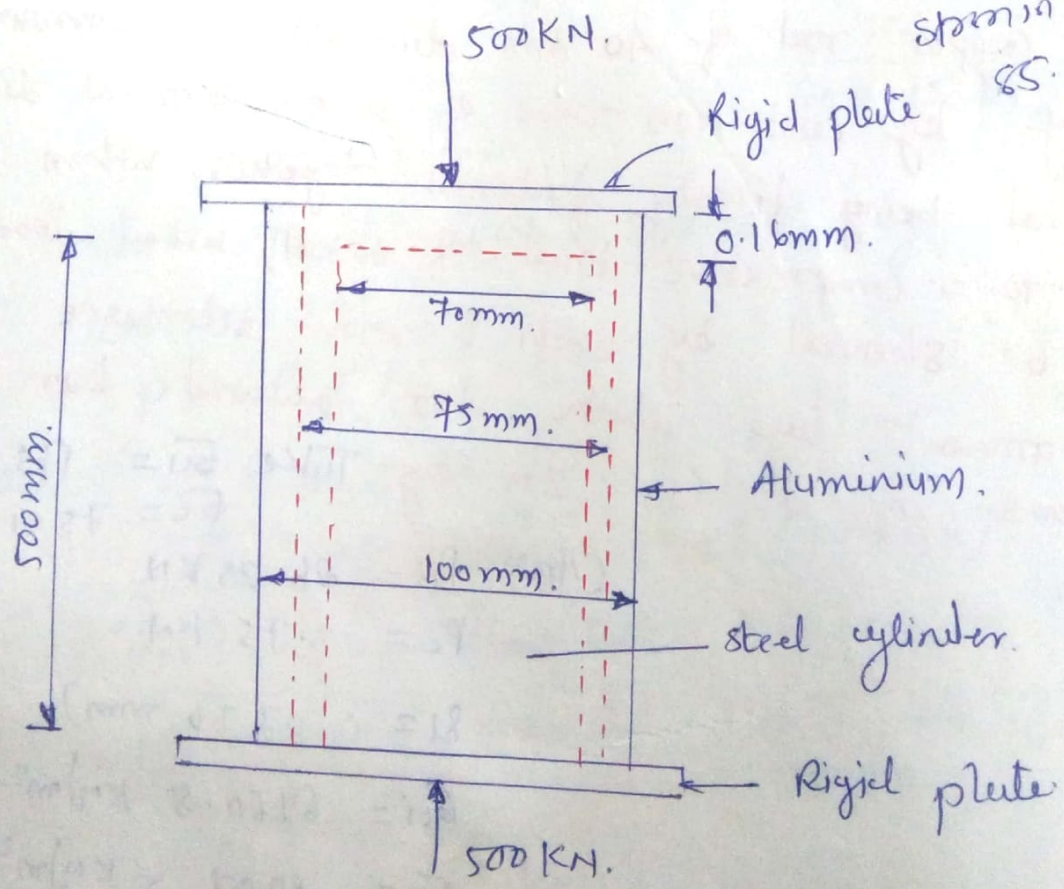 500KN.
85.
Rigid plate
0.16mm.
70mm.
75mm.
Aluminium.
500mm
100mm.
steel cylinder.
Rigid plate
500KN.